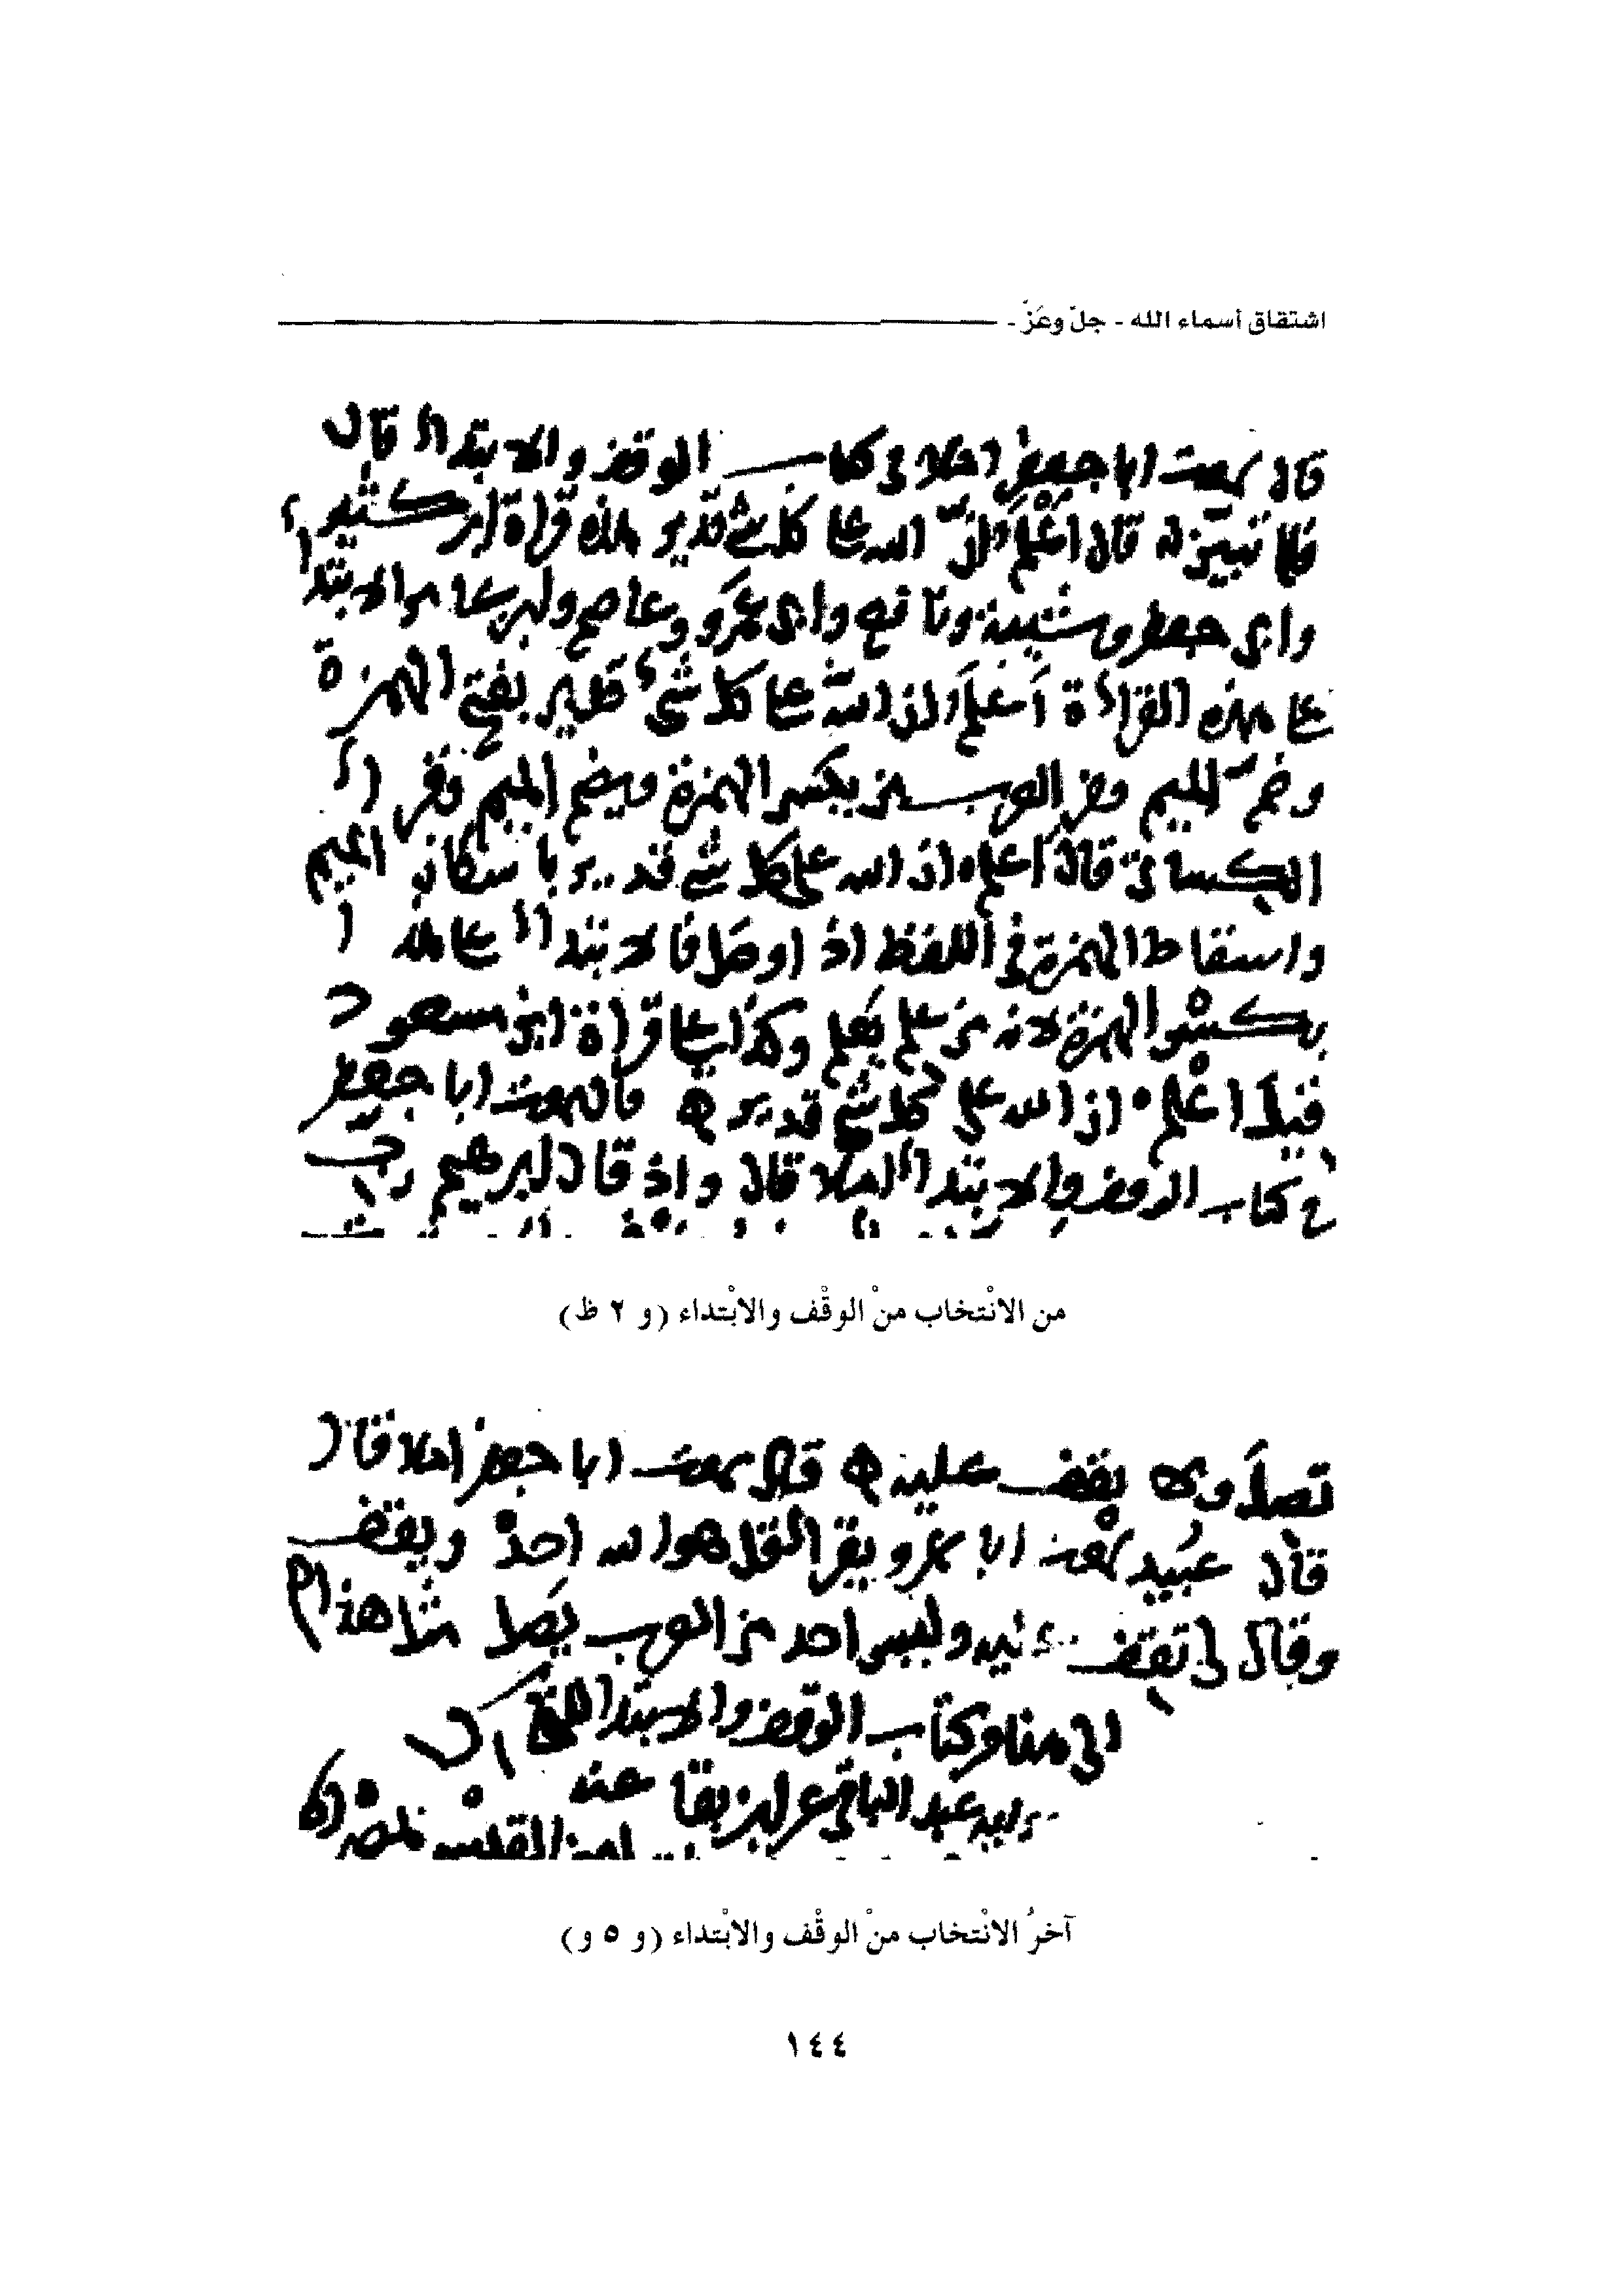 اشتقاق أسماء الله - جلّ وعَزّ -
قال سمعت ابا جعفر املا في كتاب الوقف والابتدا قال
فلما تبين له قال اعْلَم ان الله على كل شي قدير هذه قراة ابن كثير
وابي جعفر وشيبة ونافع وابي عمرو وعاصم وابن عامر والابتدا
على هذه القراءة أَعلمُ ان الله على كل شيء قدير بفتح الهمزة
وضم الميم ومن العرب من يكسر الهمزة ويضم الميم وقرا
الكسائي قال اعلم ان الله على كل شي قدير باسكان الميم
واسقاط الهمزة في اللفظ اذا وصل فالابتدا على هذا
بكسر الهمزة لانه من علم يعلم وكذا على قراة ابن مسعود
قيل اعْلم ان الله على كل شي قدير قال سمعت ابا جعفر
في كتاب الوقف والابتدا املا قال واذ قال ابرهيم رب
من الانْتخاب منْ الوقْف والابْتداء (و ٢ ظ)
تصل ولا يقف عليه قال سمعت ابا جعفر املا قال
قال عبيد سمعت ابا عمرو يقرا قل هو الله احدْ ويقف
وقال لي تقف عليه وليس احد من العرب يصل مثل هذا
الى هنا وكتاب الوقف والابتدا
عبد الباقي عن
آخرُ الانْتخاب منْ الوقْف والابْتداء (و ٥ و)
١٤٤